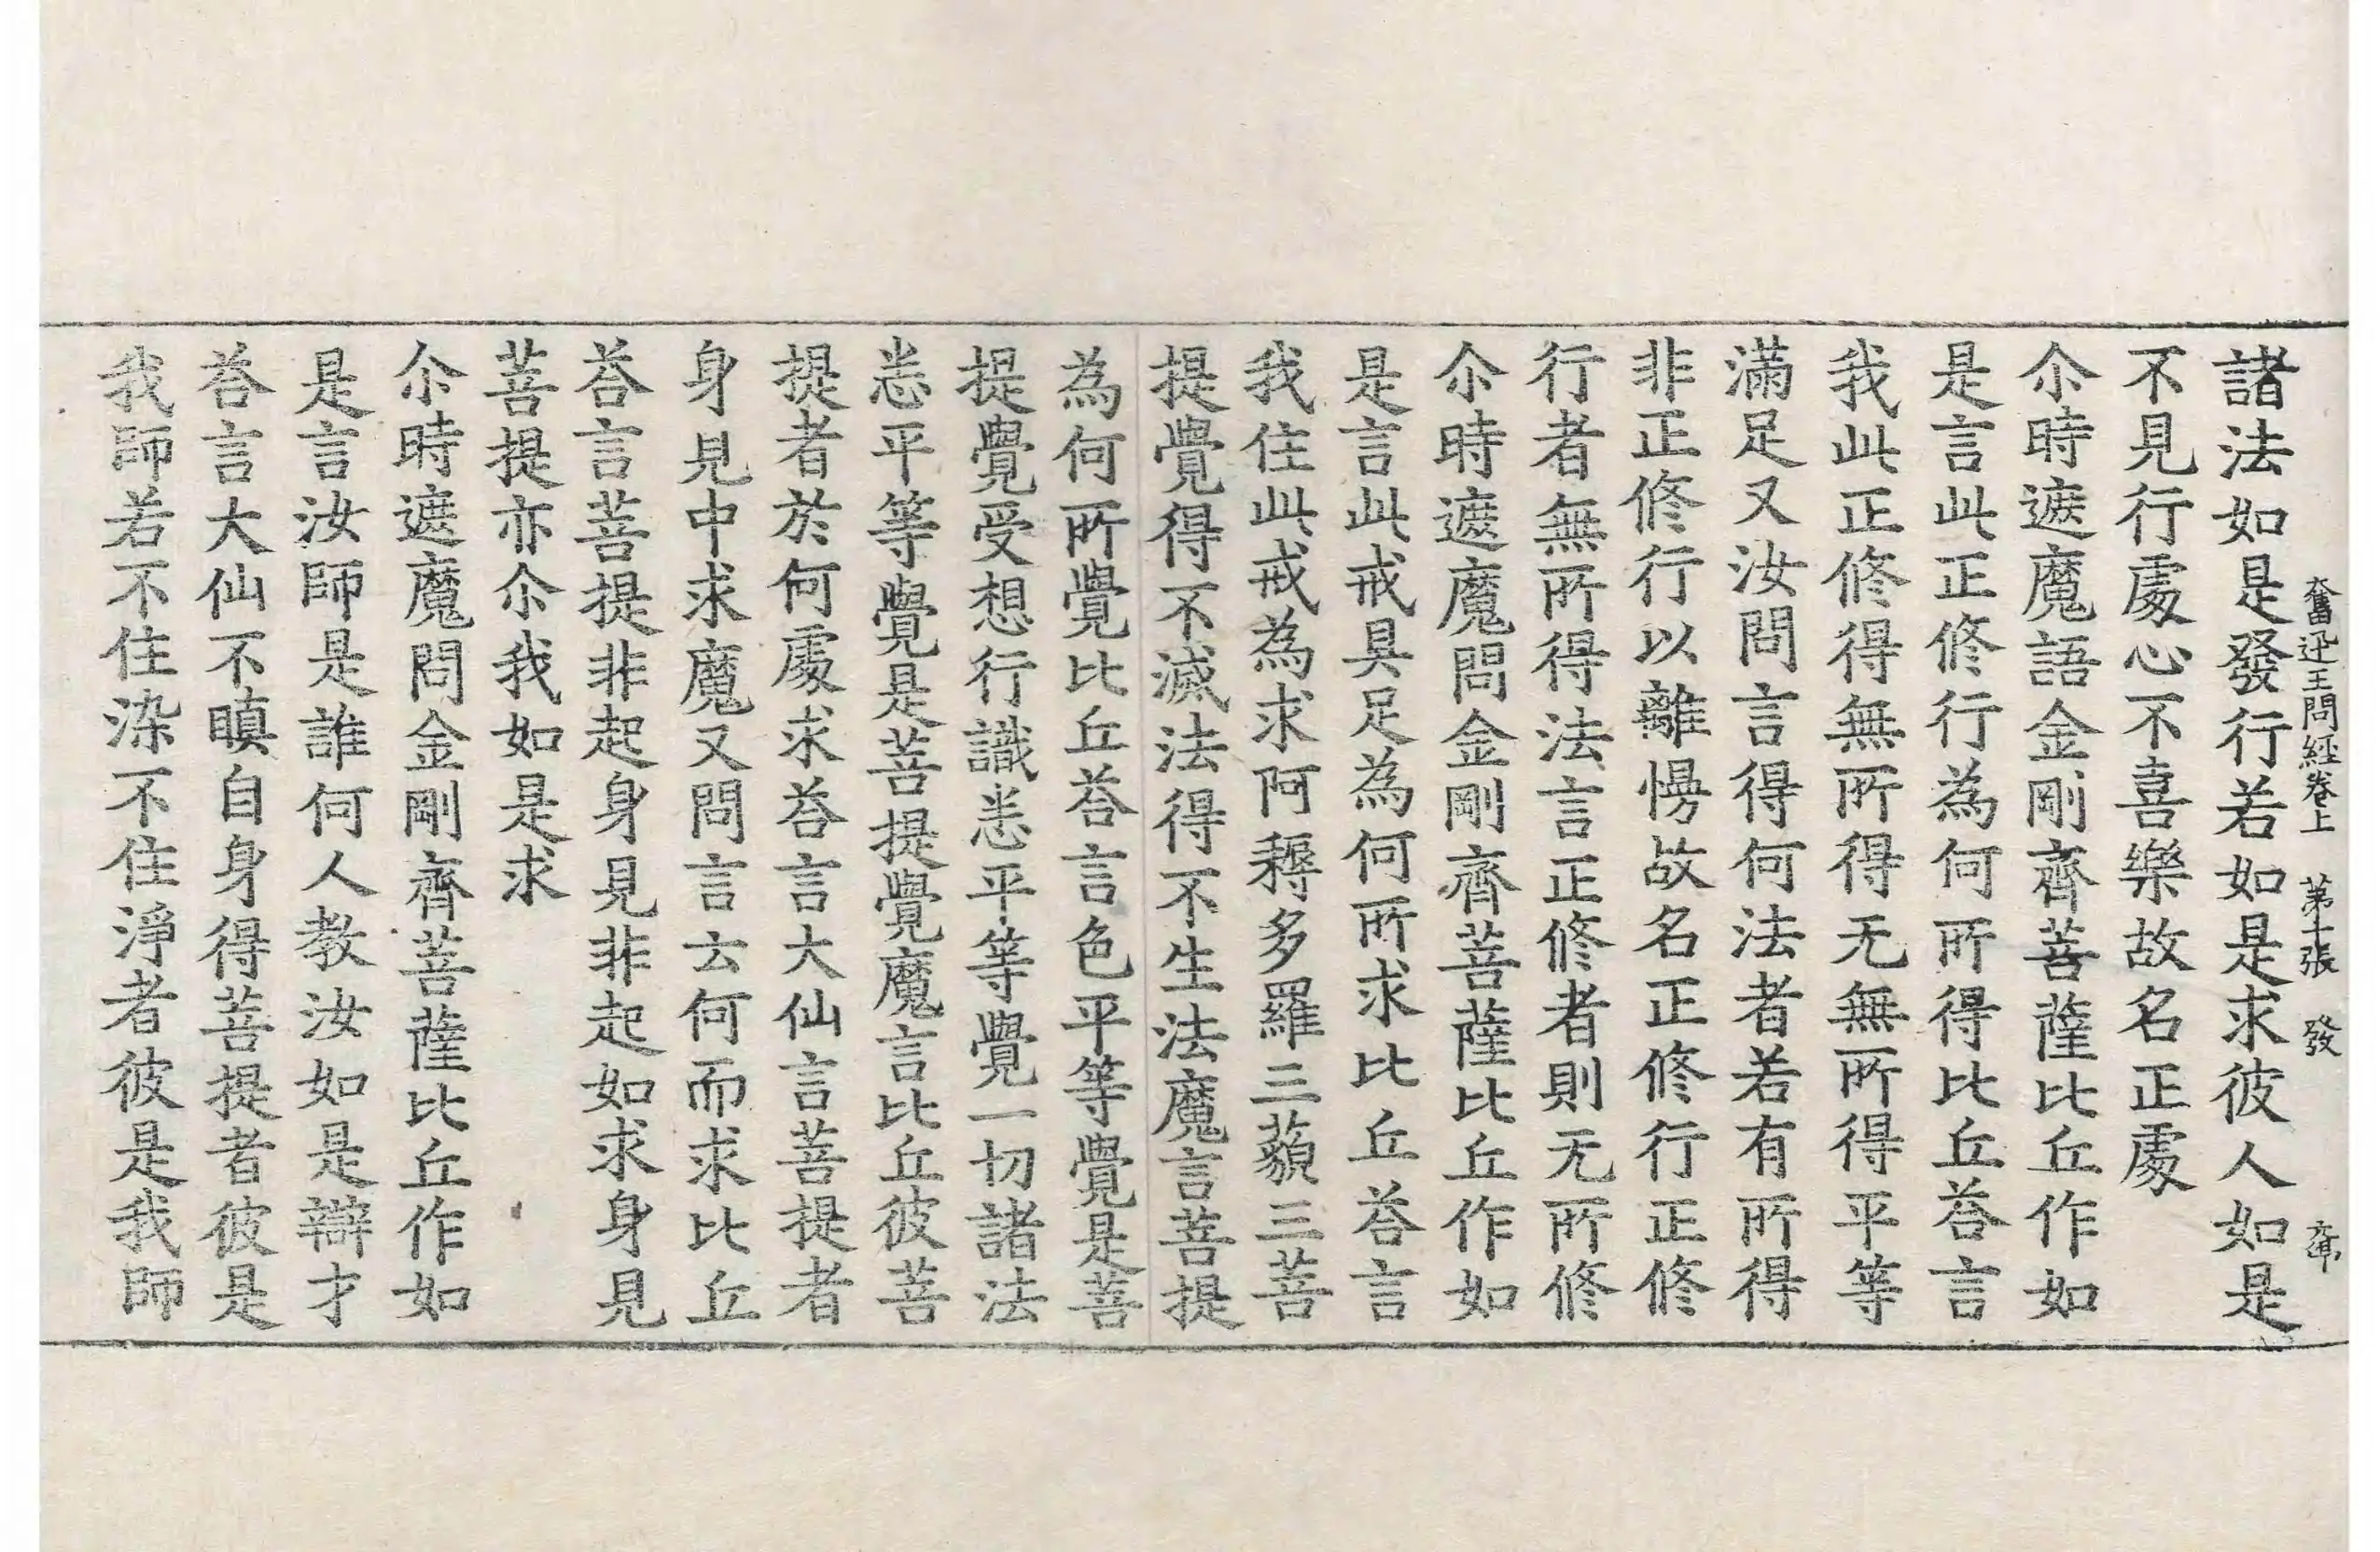 奮迅王問經卷上 第十張 發
諸法如是發行若如是求彼人如是
不見行處心不喜樂故名正處
尒時遮魔語金剛齊菩薩比丘作如
是言此正修行為何所得比丘荅言
我此正修得無所得无無所得平等
滿足又汝問言得何法者若有所得
非正修行以離慢故名正修行正修
行者無所得法言正修者則无所修
尒時遮魔問金剛齊菩薩比丘作如
是言此戒具足為何所求比丘荅言
我住此戒為求阿耨多羅三藐三菩
提覺得不滅法得不生法魔言菩提
為何所覺比丘荅言色平等覺是菩
提覺受想行識悉平等覺一切諸法
悉平等覺是菩提覺魔言比丘彼菩
提者於何處求荅言大仙言菩提者
身見中求魔又問言云何而求比丘
荅言菩提非起身見非起如求身見
菩提亦尒我如是求
尒時遮魔問金剛齊菩薩比丘作如
是言汝師是誰何人教汝如是辯才
荅言大仙不瞋自身得菩提者彼是
我師若不住染不住淨者彼是我師